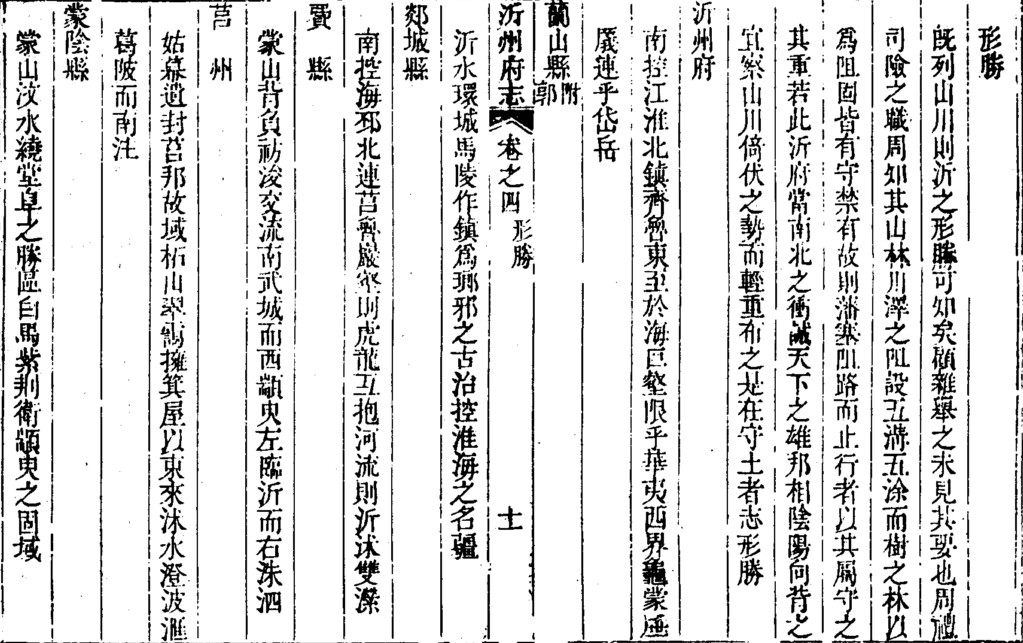 形勝
既列山川則沂之形勝可知矣顧雜舉之未見其要也周禮
司險之職周知其山林川澤之阻設五溝五涂而樹之林以
爲阻固皆有守禁有故則藩塞阻路而止行者以其屬守之
其重若此沂府當南北之衝誠天下之雄邦相陰陽向背之
宜察山川倚伏之勢而輕重布之是在守土者志形勝
沂州府
南控江淮北鎮齊魯東至於海巨壑限乎華夷西界龜蒙
嶐連乎岱岳
蘭山縣附郭
沂州府志 卷之四 形勝 十一
沂水環城馬陵作鎮爲瑯邪之古治控淮海之名疆
郯城縣
南控海邳北連莒魯巖壑則虎龍互抱河流則沂沭雙瀠
費縣
蒙山背負祊浚交流南武城而西顓臾左臨沂而右洙泗
莒州
姑幕遺封莒邦故域柘山翠靄擁箕屋以東來沭水澄波滙
葛陂而南注
蒙陰縣
蒙山汶水繞堂阜之勝區白馬紫荆衛顓臾之固域